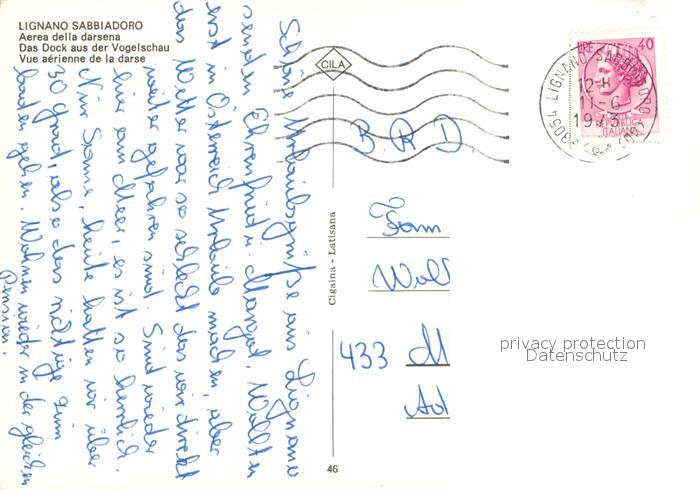 LIGNANO SABBIADORO
Aerea della darsena
Das Dock aus der Vogelschau
Vue aérienne de la darse
Schöne Urlaubsgrüße aus Lignano
senden Ehrenfried u. Margot. Wollten
erst in Österreich Urlaub machen, aber
das Wetter war so schlecht das wir direkt
weiter gefahren sind. Sind wieder
hier am Meer, es ist so herrlich.
Nur Sonne, heute hatten wir über
30 Grad also das richtige zum
baden gehen. Wohnen wieder in der gleichen
Pension.
CILA
Cigaina - Latisana
46
LIRE 40
POSTE
REPUBBLICA
ITALIANA
33054 LIGNANO SABBIADORO
12-H
11-6
1973
B R D
Fam
Wol
433 M
Ad
privacy protection
Datenschutz